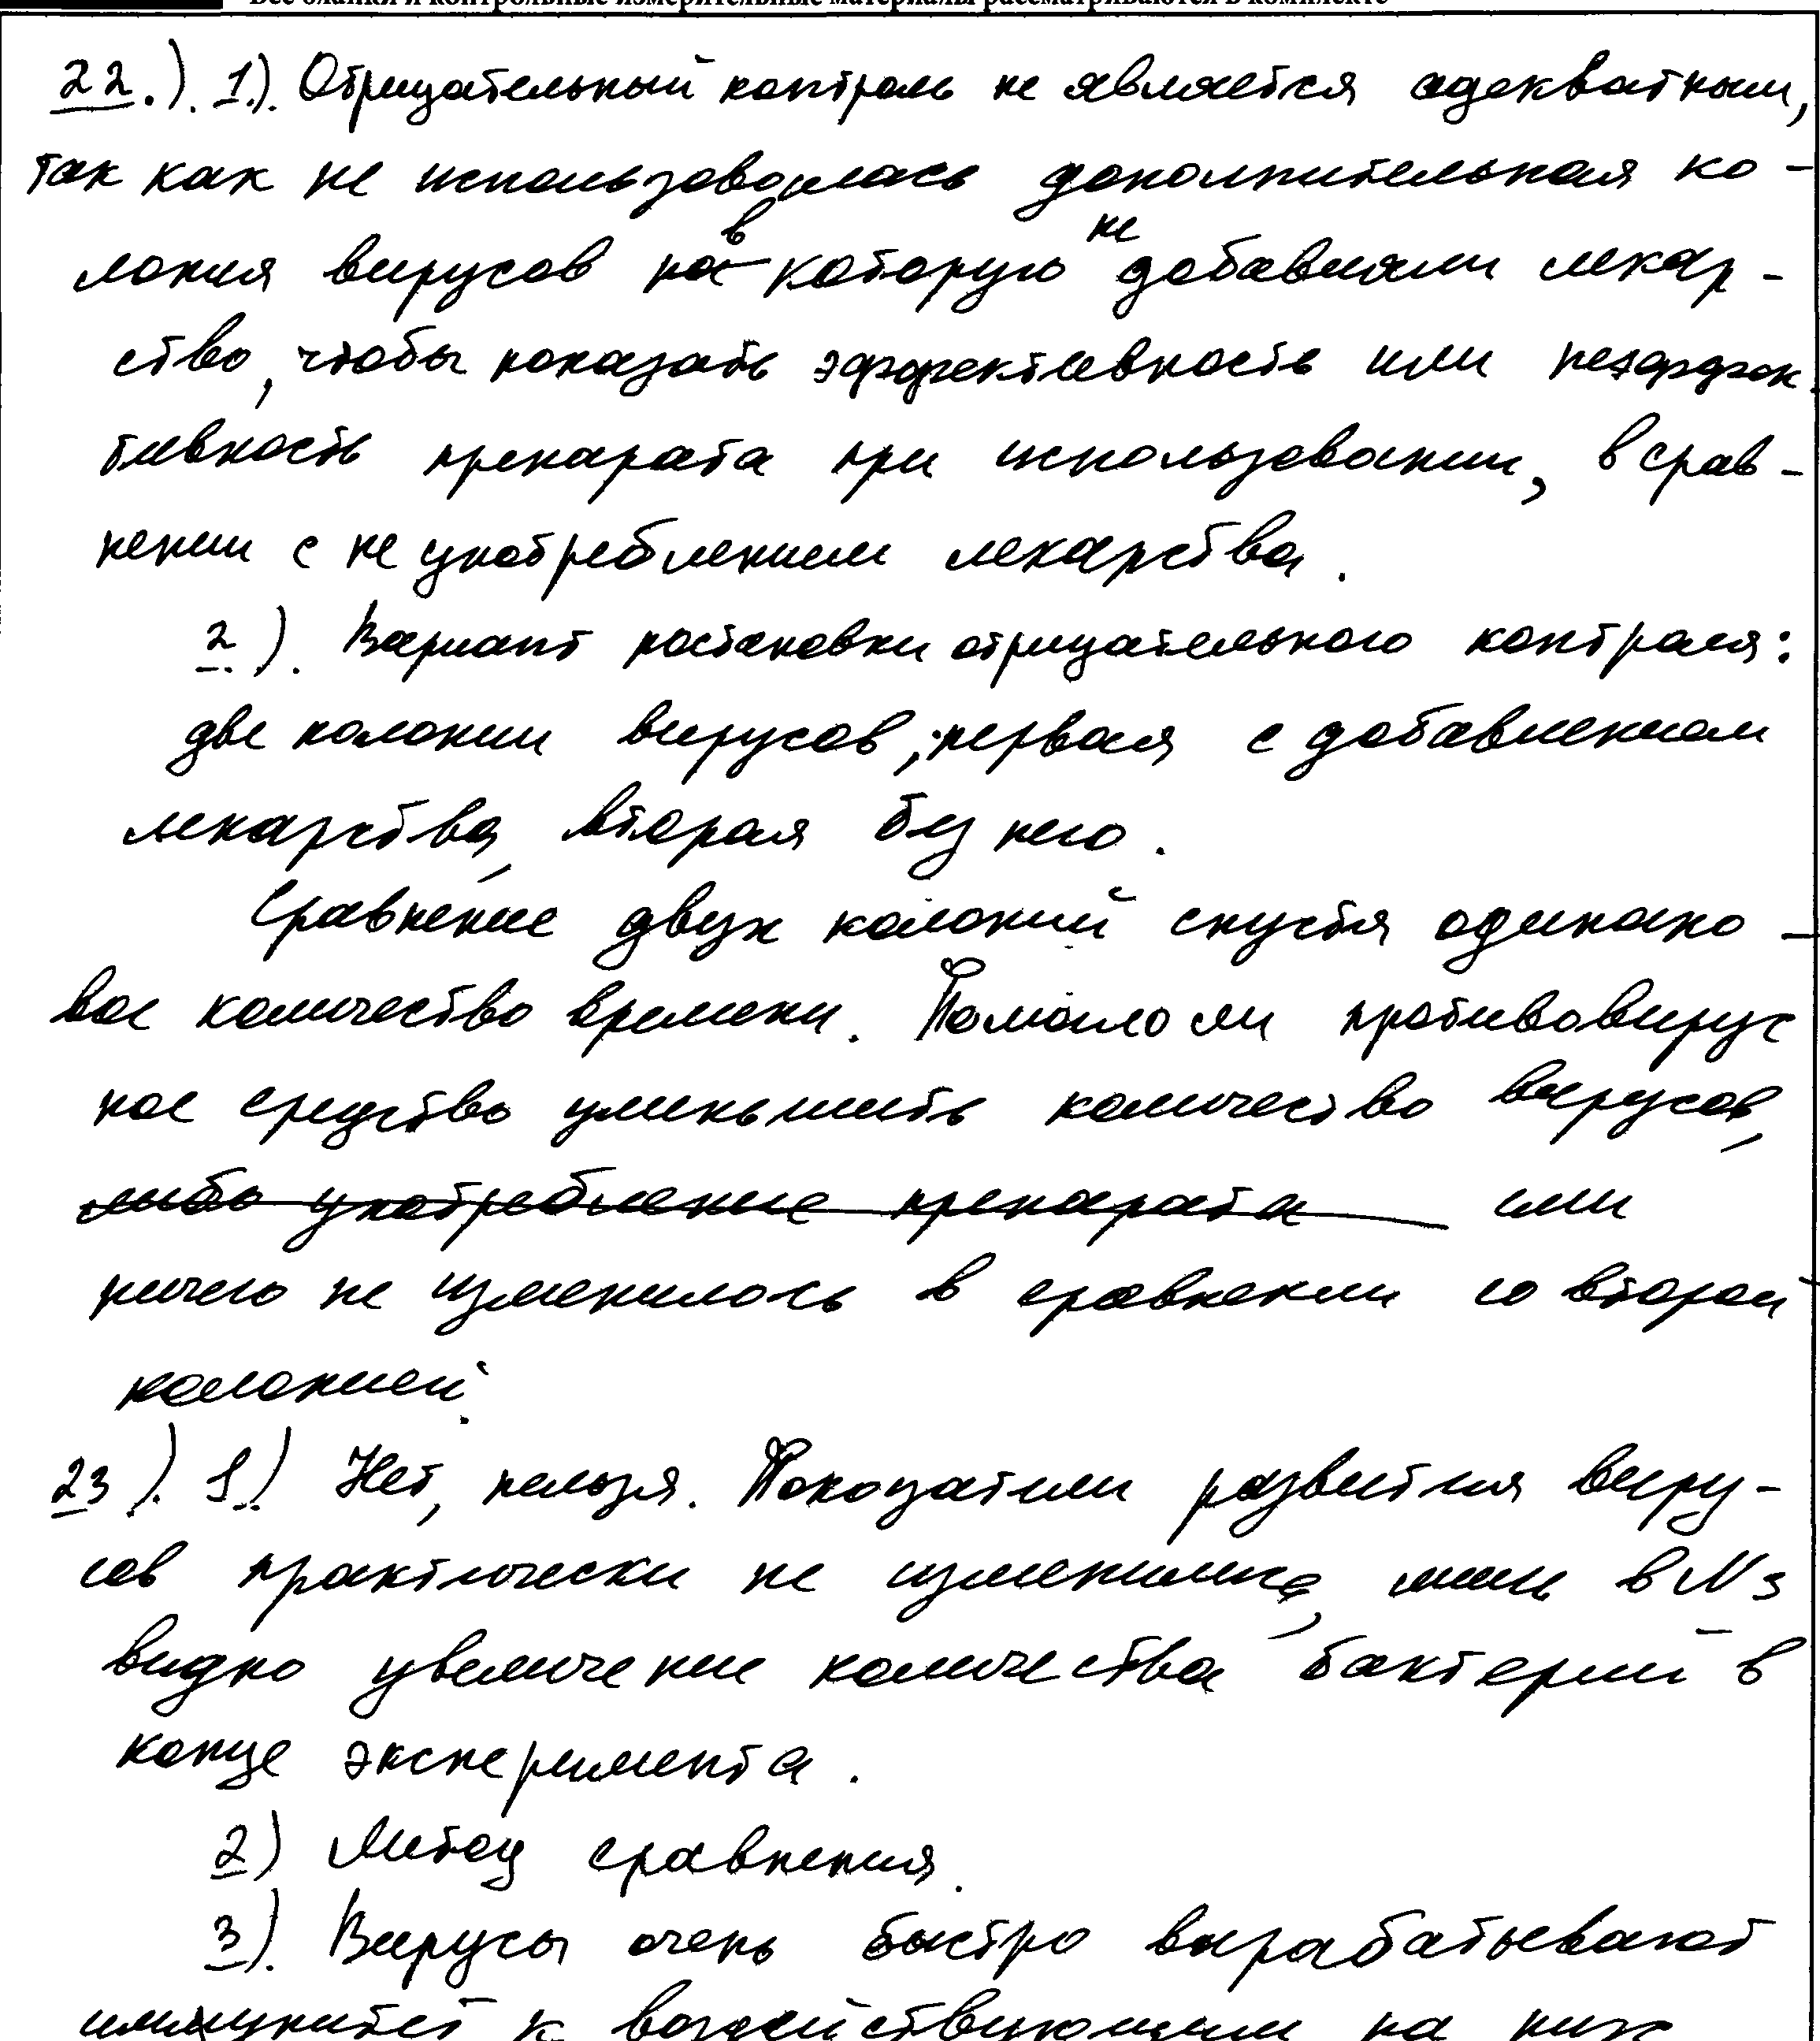 Все бланки и контрольные измерительные материалы рассматриваются в комплекте
22.). 1.). Отрицательный контроль не является адекватным,
так как не использовалась дополнительная ко-
лония вирусов в которую не добавляли лекар-
ство, чтобы показать эффективность или неэффек
тивность препарата при использовании, в срав-
нении с не употреблением лекарства.
2.). Вариант постановки отрицательного контроля:
две колонии вирусов, первая с добавлением
лекарства, вторая без него.
Сравнение двух колоний спустя одинако-
вое количество времени. Помогло ли противовирус
ное средство уменьшить количество вирусов,
либо употребление препарата или
ничего не изменилось в сравнении со второй
колонией.
23). 1.) Нет, нельзя. Показатели развития виру-
сов практически не изменились, лишь в N3
видно увеличение количества бактерий в
конце эксперимента.
2) Метод сравнения.
3). Вирусы очень быстро вырабатывают
иммунитет к воздействующим на них